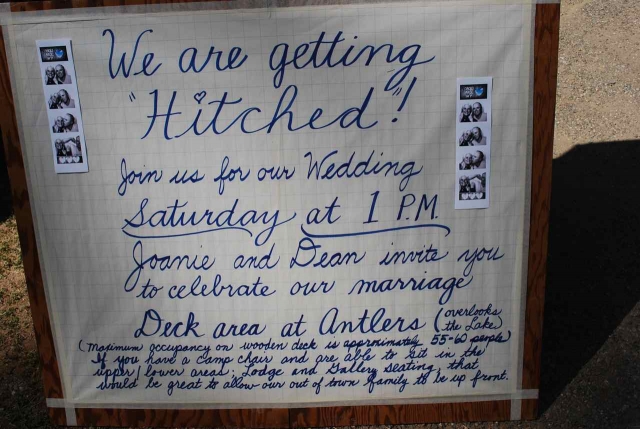 We are getting
"Hitched"!
Join us for our Wedding
Saturday at 1 P.M.
Joanie and Dean invite you
to celebrate our marriage
Deck area at Antlers (overlooks the Lake)
(Maximum occupancy on wooden deck is approximately 55-60 people)
If you have a camp chair and are able to sit in the
upper/lower areas; Lodge and Gallery seating, that
would be great to allow our out of town family to be up front.